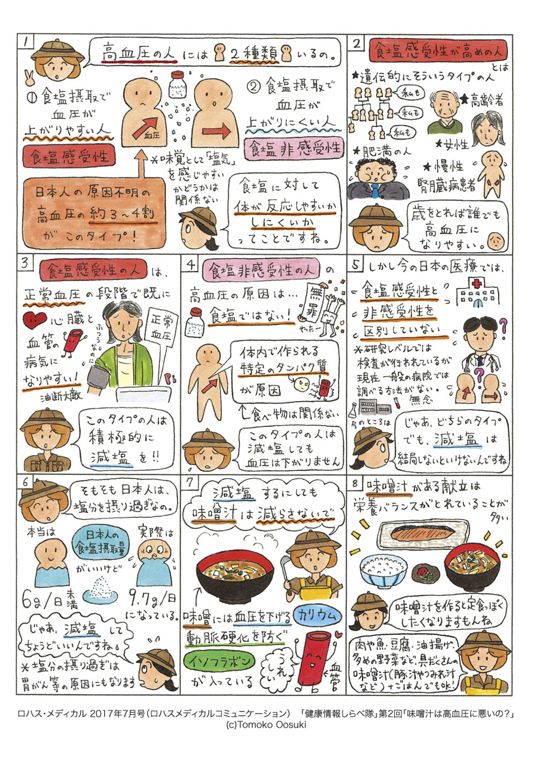 1
高血圧の人には2種類いるの。
①食塩摂取で
血圧が
上がりやすい人
食塩感受性
日本人の原因不明の
高血圧の約3~4割
がこのタイプ!
血圧
②食塩摂取で
血圧が
上がりにくい人
食塩非感受性
※味覚として「塩気」
を感じやすい
かどうかは
関係ない
食塩に対して
体が反応しやすいか
しにくいか
ってことですね。
2
食塩感受性が高めの人
とは
★遺伝的にそういうタイプの人
私も
私も
★高齢者
★女性
★肥満の人
★慢性
腎臓病患者
歳をとれば誰でも
高血圧に
なりやすい。
3
食塩感受性の人は、
正常血圧の段階で既に
心臓と
血管の
病気に
なりやすい!
油断大敵
正常
血圧
このタイプの人は
積極的に
減塩を!!
4
食塩非感受性の人の
高血圧の原因は…
食塩ではない!
無罪
やったー
体内で作られる
特定のタンパク質
が原因
食べ物は関係ない
このタイプの人は
減塩しても
血圧は下がりません
5
しかし今の日本の医療では、
食塩感受性と
非感受性を
区別していない
※研究レベルでは
検査が行われているが
現在一般の病院では
調べる方法がない。
無念
今のところは
じゃあ、どちらのタイプ
でも、減塩は
結局しないといけないんですね
6
そもそも日本人は、
塩分を摂り過ぎなの。
本当は
日本人の
食塩摂取量
がいいけど
実際は
6g/日未満
9.7g/日
になっている。
じゃあ、減塩して
ちょうどいいんですね。
※塩分の摂り過ぎは
胃がん等の原因にもなります
7
減塩するにしても
味噌汁は減らさないで
味噌には血圧を下げる
カリウム
動脈硬化を防ぐ
イソフラボン
が入っている
うれしい
血管
8
味噌汁がある献立は
栄養バランスがとれていることが
多い
味噌汁を作ると定食っぽく
したくなりますもんね
肉や魚・豆腐・油揚げ
多めの野菜など、具だくさんの
味噌汁(豚汁やつみれ汁
など)+ごはんでもok!
ロハス・メディカル 2017年7月号(ロハスメディカルコミュニケーション) 「健康情報しらべ隊」第2回「味噌汁は高血圧に悪いの?」
(c)Tomoko Oosuki